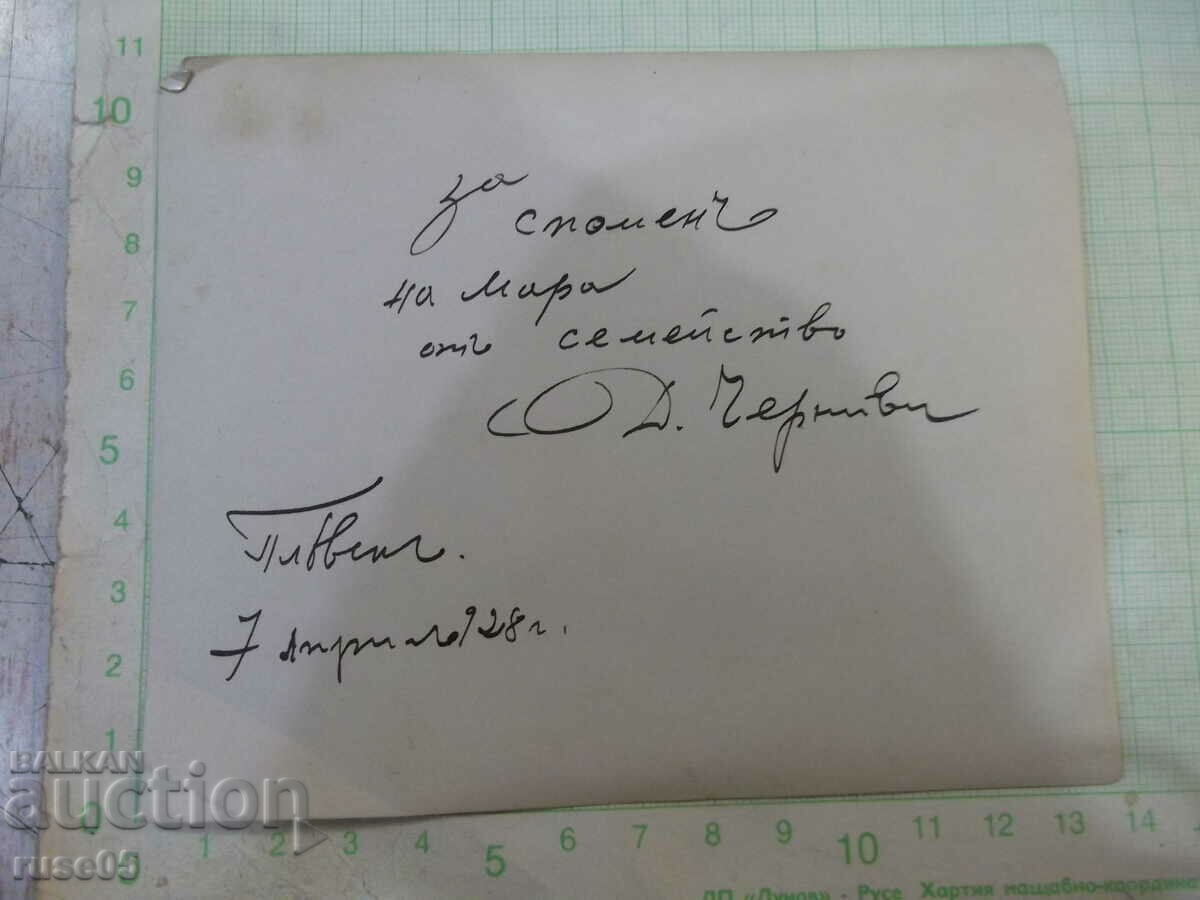 за
споменъ
на Мара
отъ семейство
Д. Черневи
Плѣвенъ.
7 априлъ 928 г.
11
10
9
8
7
6
5
4
3
2
1
0
1
2
3
4
5
6
7
8
9
10
11
12
13
14
BALKAN
auction
ruse05
ДП «Дунов» - Русе Хартия мащабно-координа